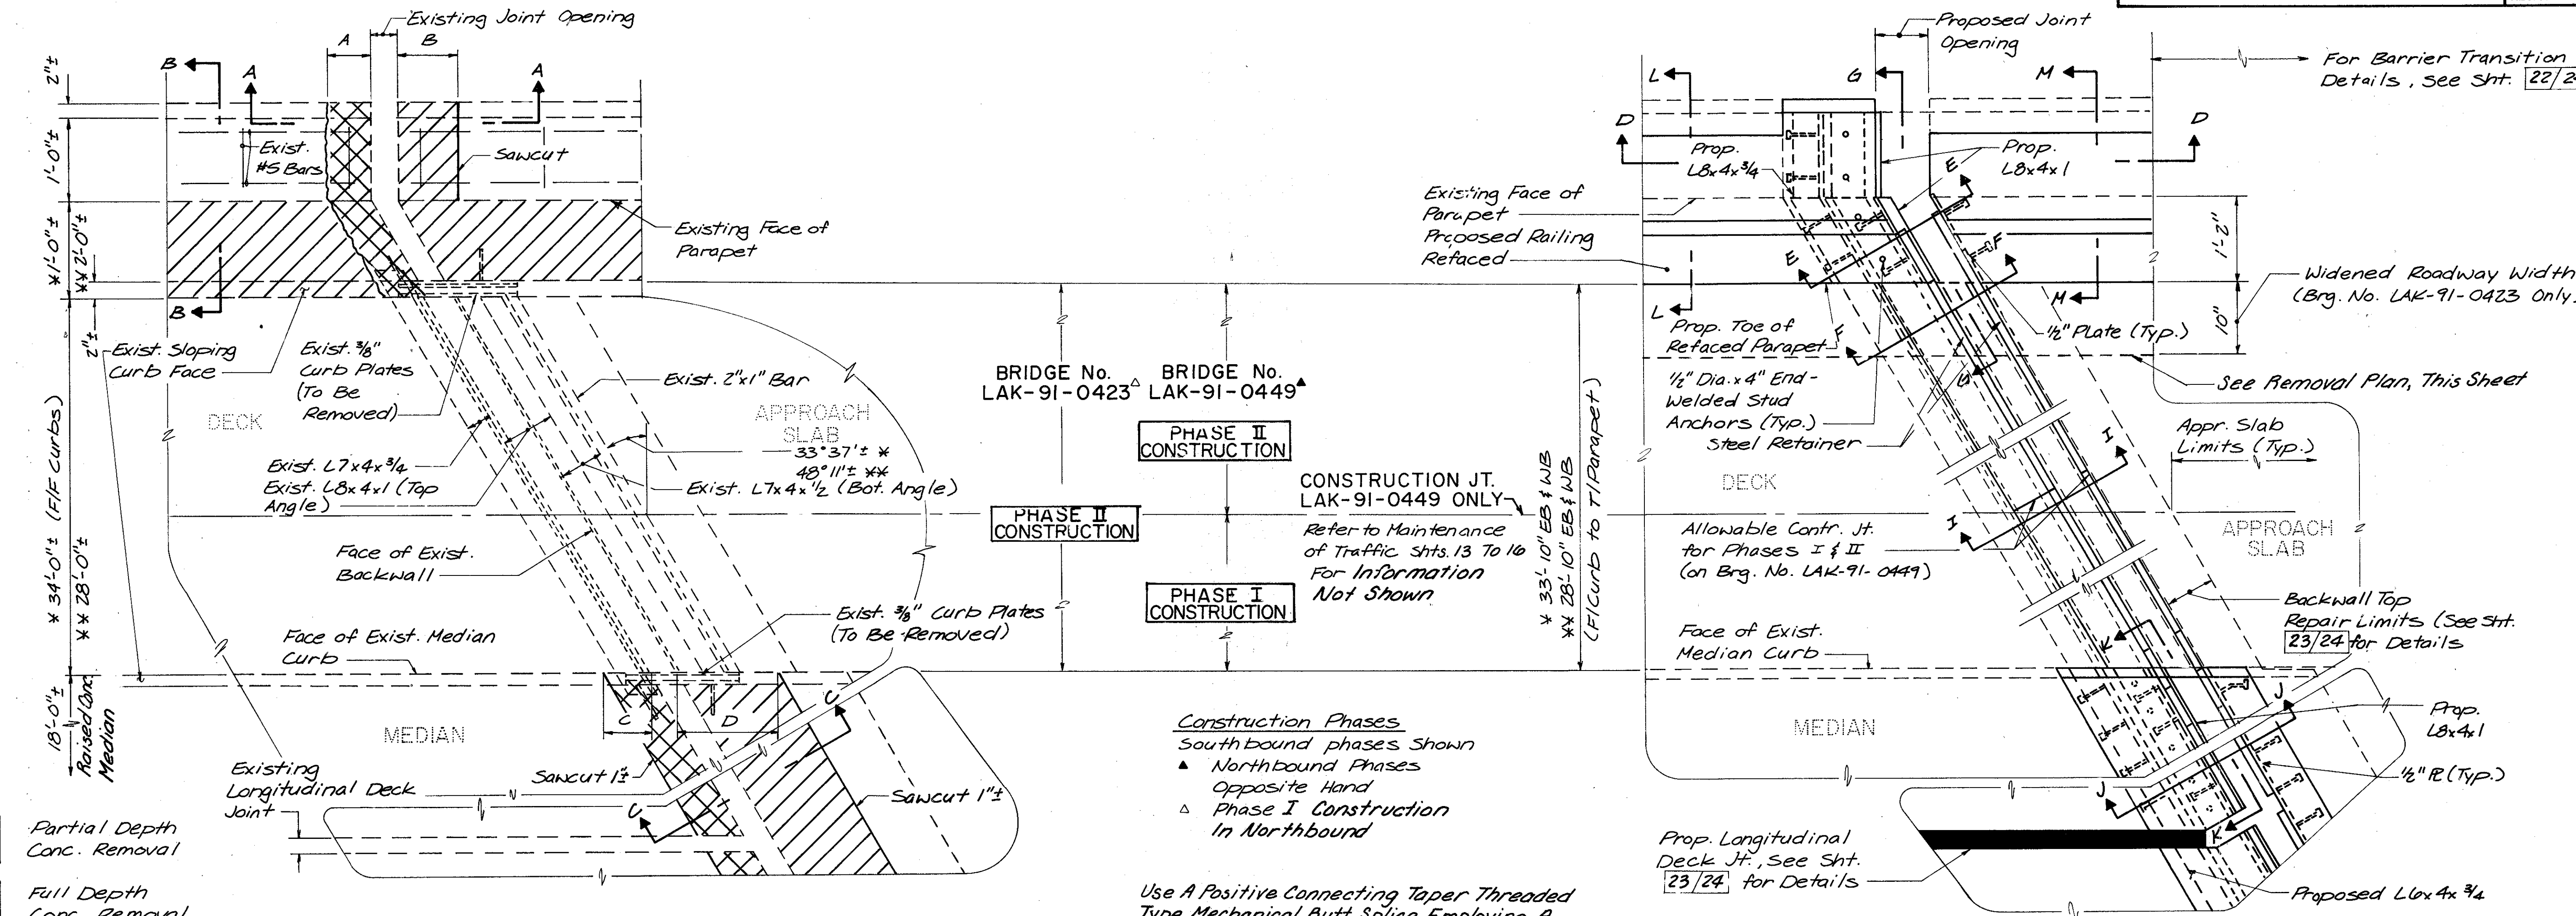 Existing Joint Opening
A
B
B
A
A
2"±
1'-0"±
Exist.
#5 Bars
Sawcut
*1'-0"±
**2'-0"±
Existing Face of
Parapet
B
2"±
Exist. Sloping
Curb Face
Exist. 3/8"
Curb Plates
(To Be
Removed)
Exist. 2"x1" Bar
DECK
APPROACH
SLAB
33°37'± *
48°11'± **
Exist. L7x4x3/4
Exist. L8x4x1 (Top
Angle)
Exist. L7x4x1/2 (Bot. Angle)
* 34'-0"± (F/F Curbs)
** 28'-0"±
Face of Exist.
Backwall
Exist. 3/8" Curb Plates
(To Be Removed)
Face of Exist. Median
Curb
18'-0"±
Raised Conc.
Median
C
D
C
MEDIAN
Existing
Longitudinal Deck
Joint
Sawcut 1"±
C
Sawcut 1"±
Partial Depth
Conc. Removal
Full Depth
Conc. Removal
BRIDGE No.
LAK-91-0423△
BRIDGE No.
LAK-91-0449▲
PHASE II
CONSTRUCTION
PHASE II
CONSTRUCTION
PHASE I
CONSTRUCTION
CONSTRUCTION JT.
LAK-91-0449 ONLY
Refer to Maintenance
of Traffic Shts. 13 To 16
For Information
Not Shown
* 33'-10" EB & WB
** 28'-10" EB & WB
(F/Curb to T/Parapet)
Construction Phases
Southbound phases Shown
▲ Northbound Phases
Opposite Hand
△ Phase I Construction
In Northbound
Use A Positive Connecting Taper Threaded
Type Mechanical Butt Splice Employing A
Proposed Joint
Opening
For Barrier Transition
Details, See Sht. 22/24
L
G
M
D
D
Prop.
L8x4x3/4
Prop.
L8x4x1
E
Existing Face of
Parapet
Proposed Railing
Refaced
E
F
1'-2"
10"
Widened Roadway Width
(Brg. No. LAK-91-0423 Only)
L
M
Prop. Toe of
Refaced Parapet
F
G
1/2" Plate (Typ.)
See Removal Plan, This Sheet
1/2" Dia. x 4" End-
Welded Stud
Anchors (Typ.)
Steel Retainer
Appr. Slab
Limits (Typ.)
I
DECK
APPROACH
SLAB
Allowable Contr. Jt.
for Phases I & II
(on Brg. No. LAK-91-0449)
I
Backwall Top
Repair Limits (See Sht.
23/24 for Details
Face of Exist.
Median Curb
K
J
MEDIAN
Prop.
L8x4x1
1/2" PL (Typ.)
J
K
Prop. Longitudinal
Deck Jt., See Sht.
23/24 for Details
Proposed L6x4x3/4